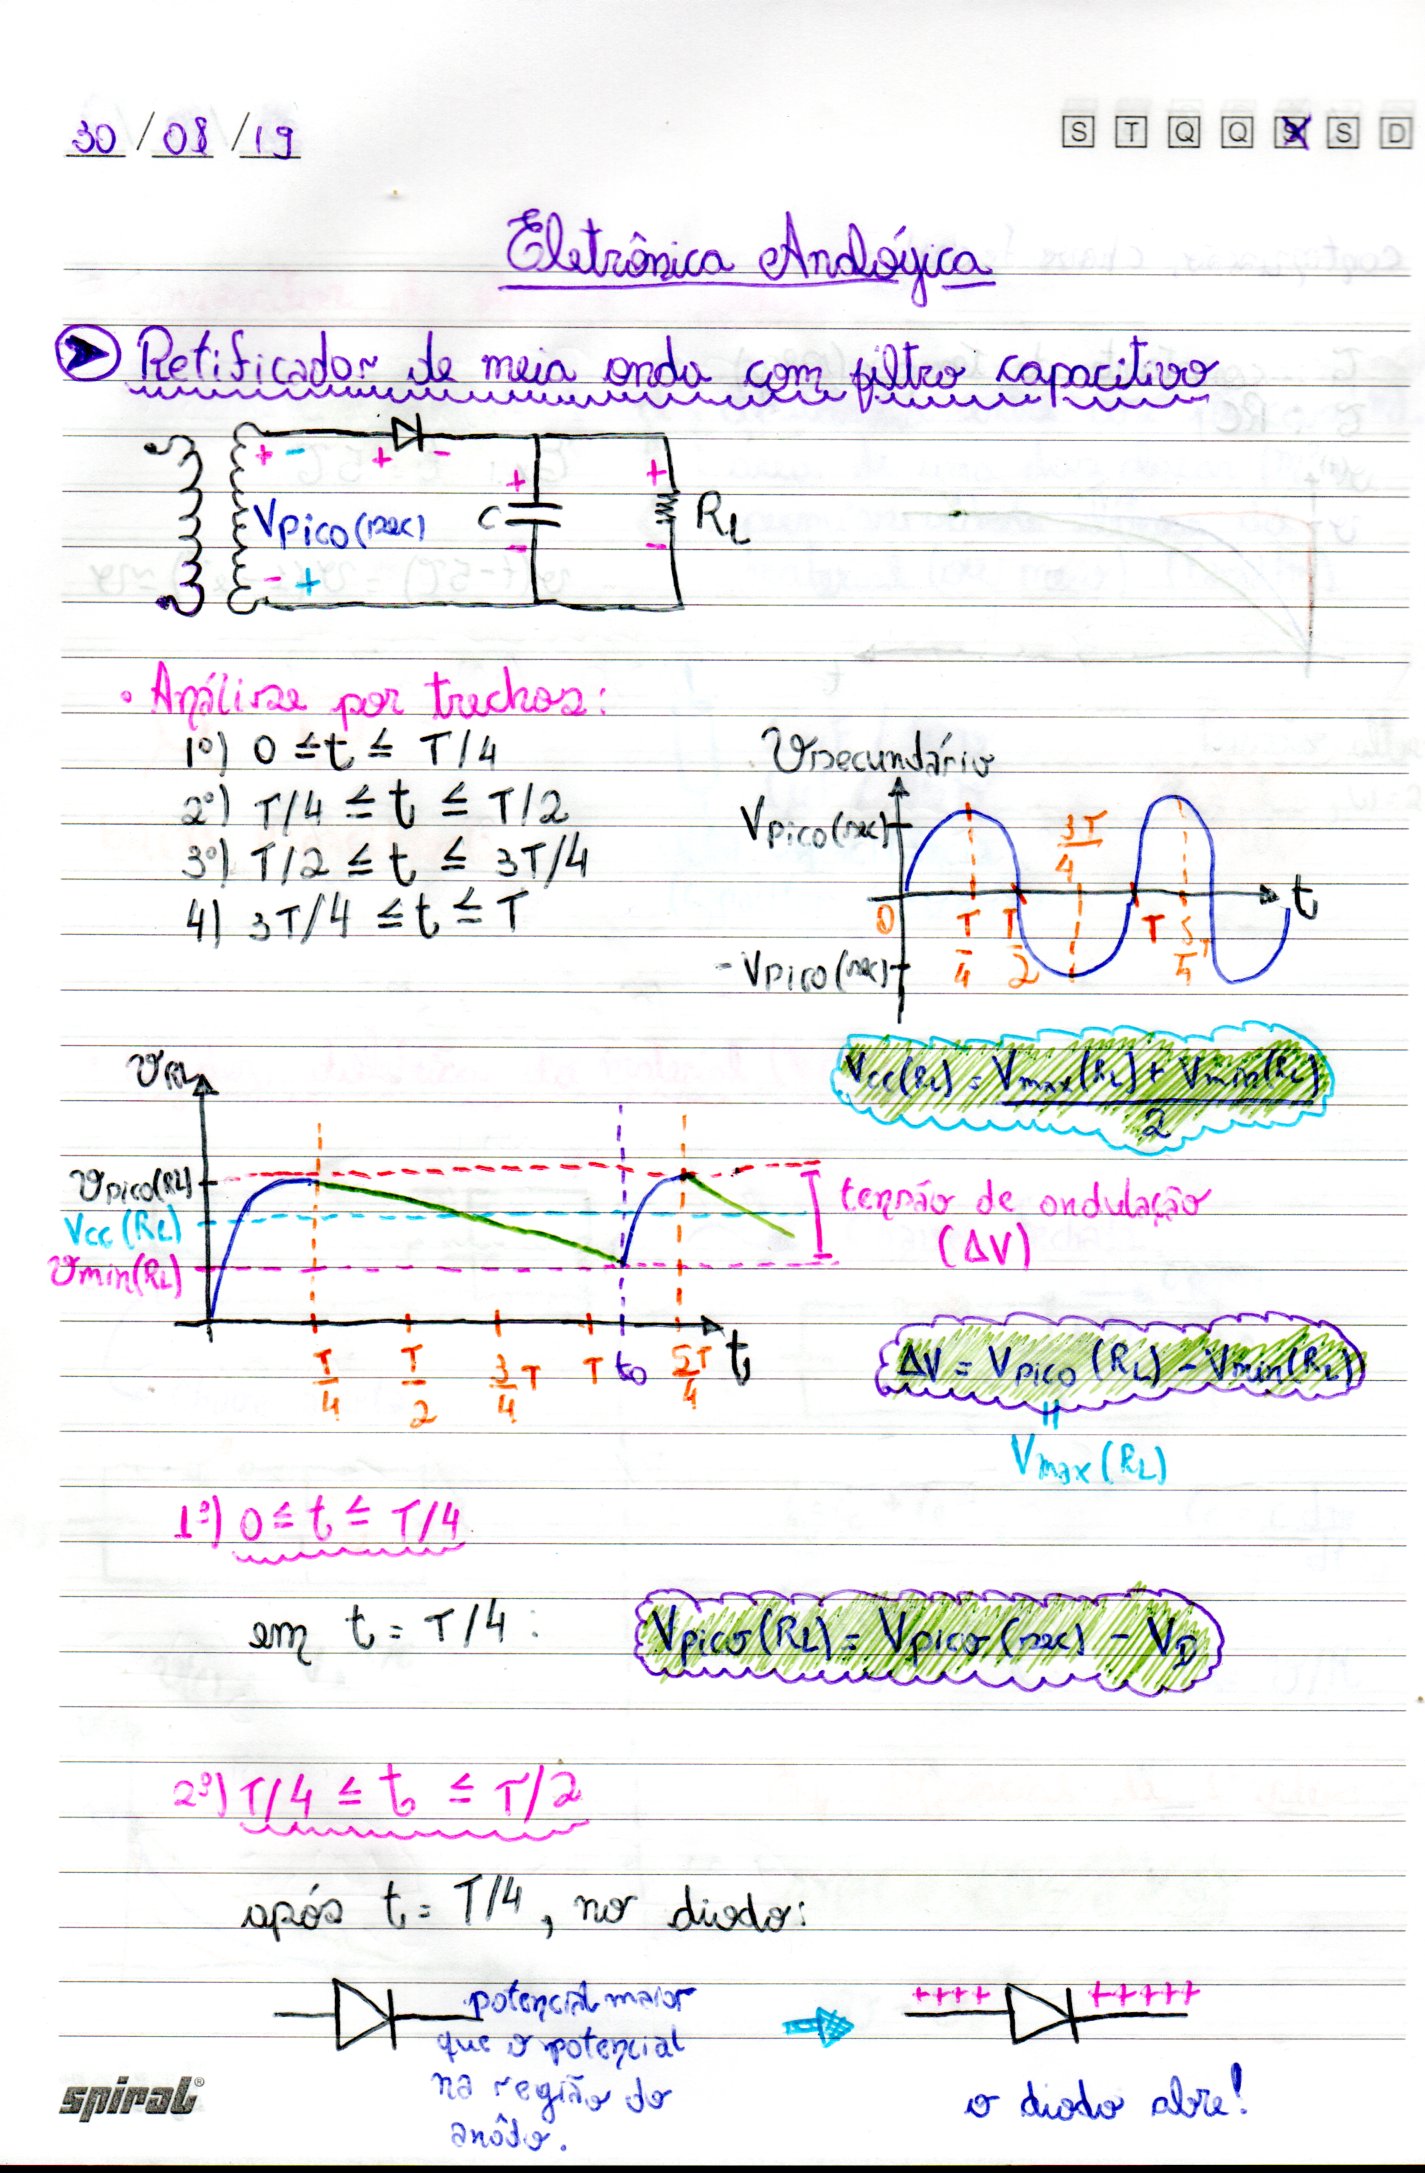 30/08/19
S T Q Q S S D
Eletrônica Analógica
Retificador de meia onda com filtro capacitivo
+ - + -
Vpico(sec)
C
+
-
+
-
RL
- +
• Análise por trechos:
1º) 0 ≤ t ≤ T/4
2º) T/4 ≤ t ≤ T/2
3º) T/2 ≤ t ≤ 3T/4
4) 3T/4 ≤ t ≤ T
Vsecundário
Vpico(sec)
3T/4
t
0 T/4 T/2 T 5/4 T
-Vpico(sec)
Vcc(RL) = Vmax(RL) + Vmin(RL)
2
VRL
Vpico(RL)
Vcc(RL)
Vmin(RL)
tensão de ondulação
(ΔV)
T/4 T/2 3/4 T T t0 5T/4 t
ΔV = Vpico(RL) - Vmin(RL)
=
Vmax(RL)
1º) 0 ≤ t ≤ T/4
em t = T/4:
Vpico(RL) = Vpico(sec) - VD
2º) T/4 ≤ t ≤ T/2
após t = T/4, no diodo:
potencial maior
que o potencial
na região do
anôdo.
++++ +++++
o diodo abre!
spiral®